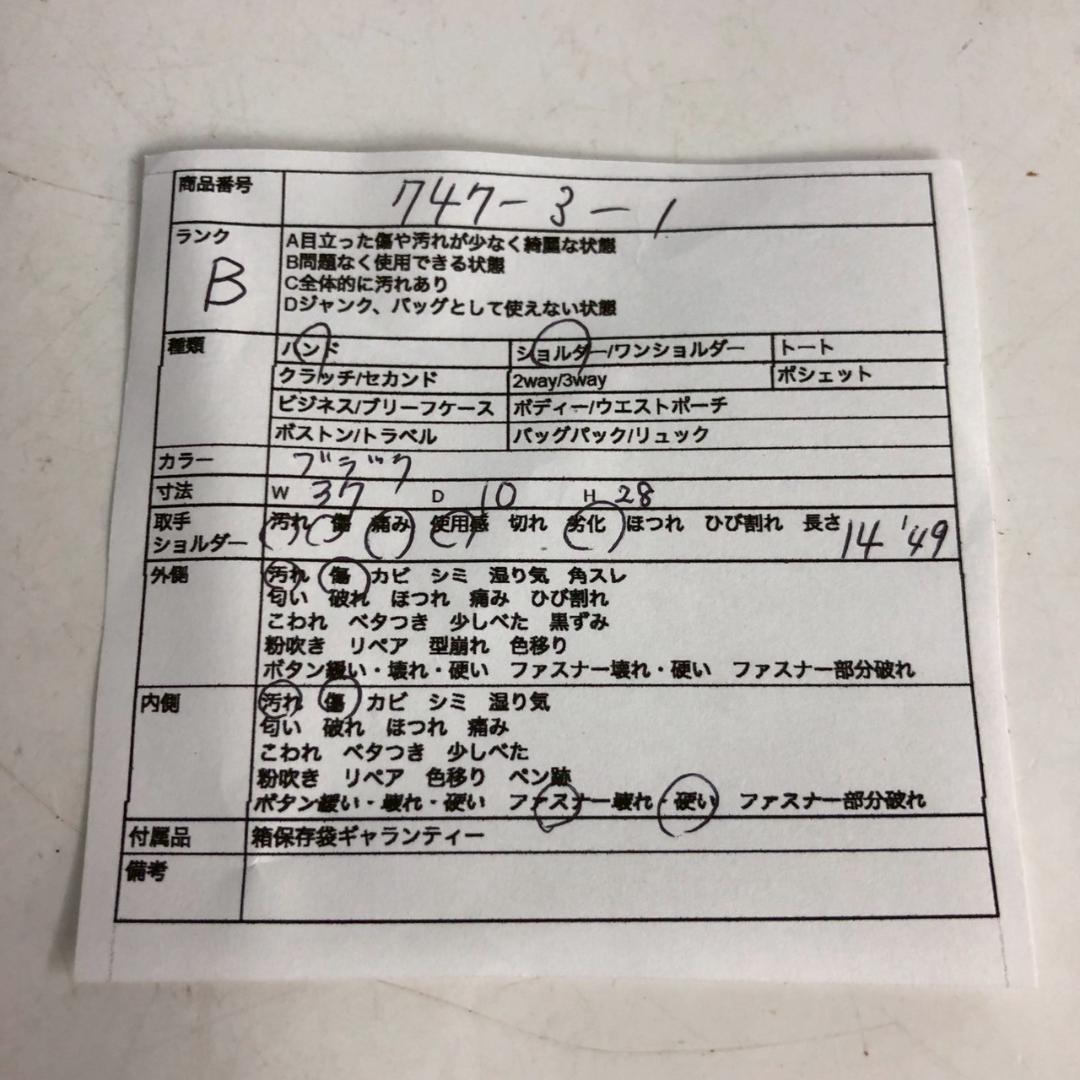 商品番号 747-3-1
ランク B
A目立った傷や汚れが少なく綺麗な状態
B問題なく使用できる状態
C全体的に汚れあり
Dジャンク、バッグとして使えない状態
種類 ハンド ショルダー/ワンショルダー トート
クラッチ/セカンド 2way/3way ポシェット
ビジネス/ブリーフケース ボディー/ウエストポーチ
ボストン/トラベル バッグパック/リュック
カラー ブラック
寸法 W 37 D 10 H 28
取手 汚れ 傷 痛み 使用感 切れ 劣化 ほつれ ひび割れ 長さ 14'49
ショルダー
外側 汚れ 傷 カビ シミ 湿り気 角スレ
匂い 破れ ほつれ 痛み ひび割れ
こわれ ベタつき 少しべた 黒ずみ
粉吹き リペア 型崩れ 色移り
ボタン緩い・壊れ・硬い ファスナー壊れ・硬い ファスナー部分破れ
内側 汚れ 傷 カビ シミ 湿り気
匂い 破れ ほつれ 痛み
こわれ ベタつき 少しべた
粉吹き リペア 色移り ペン跡
ボタン緩い・壊れ・硬い ファスナー壊れ・硬い ファスナー部分破れ
付属品 箱保存袋ギャランティー
備考